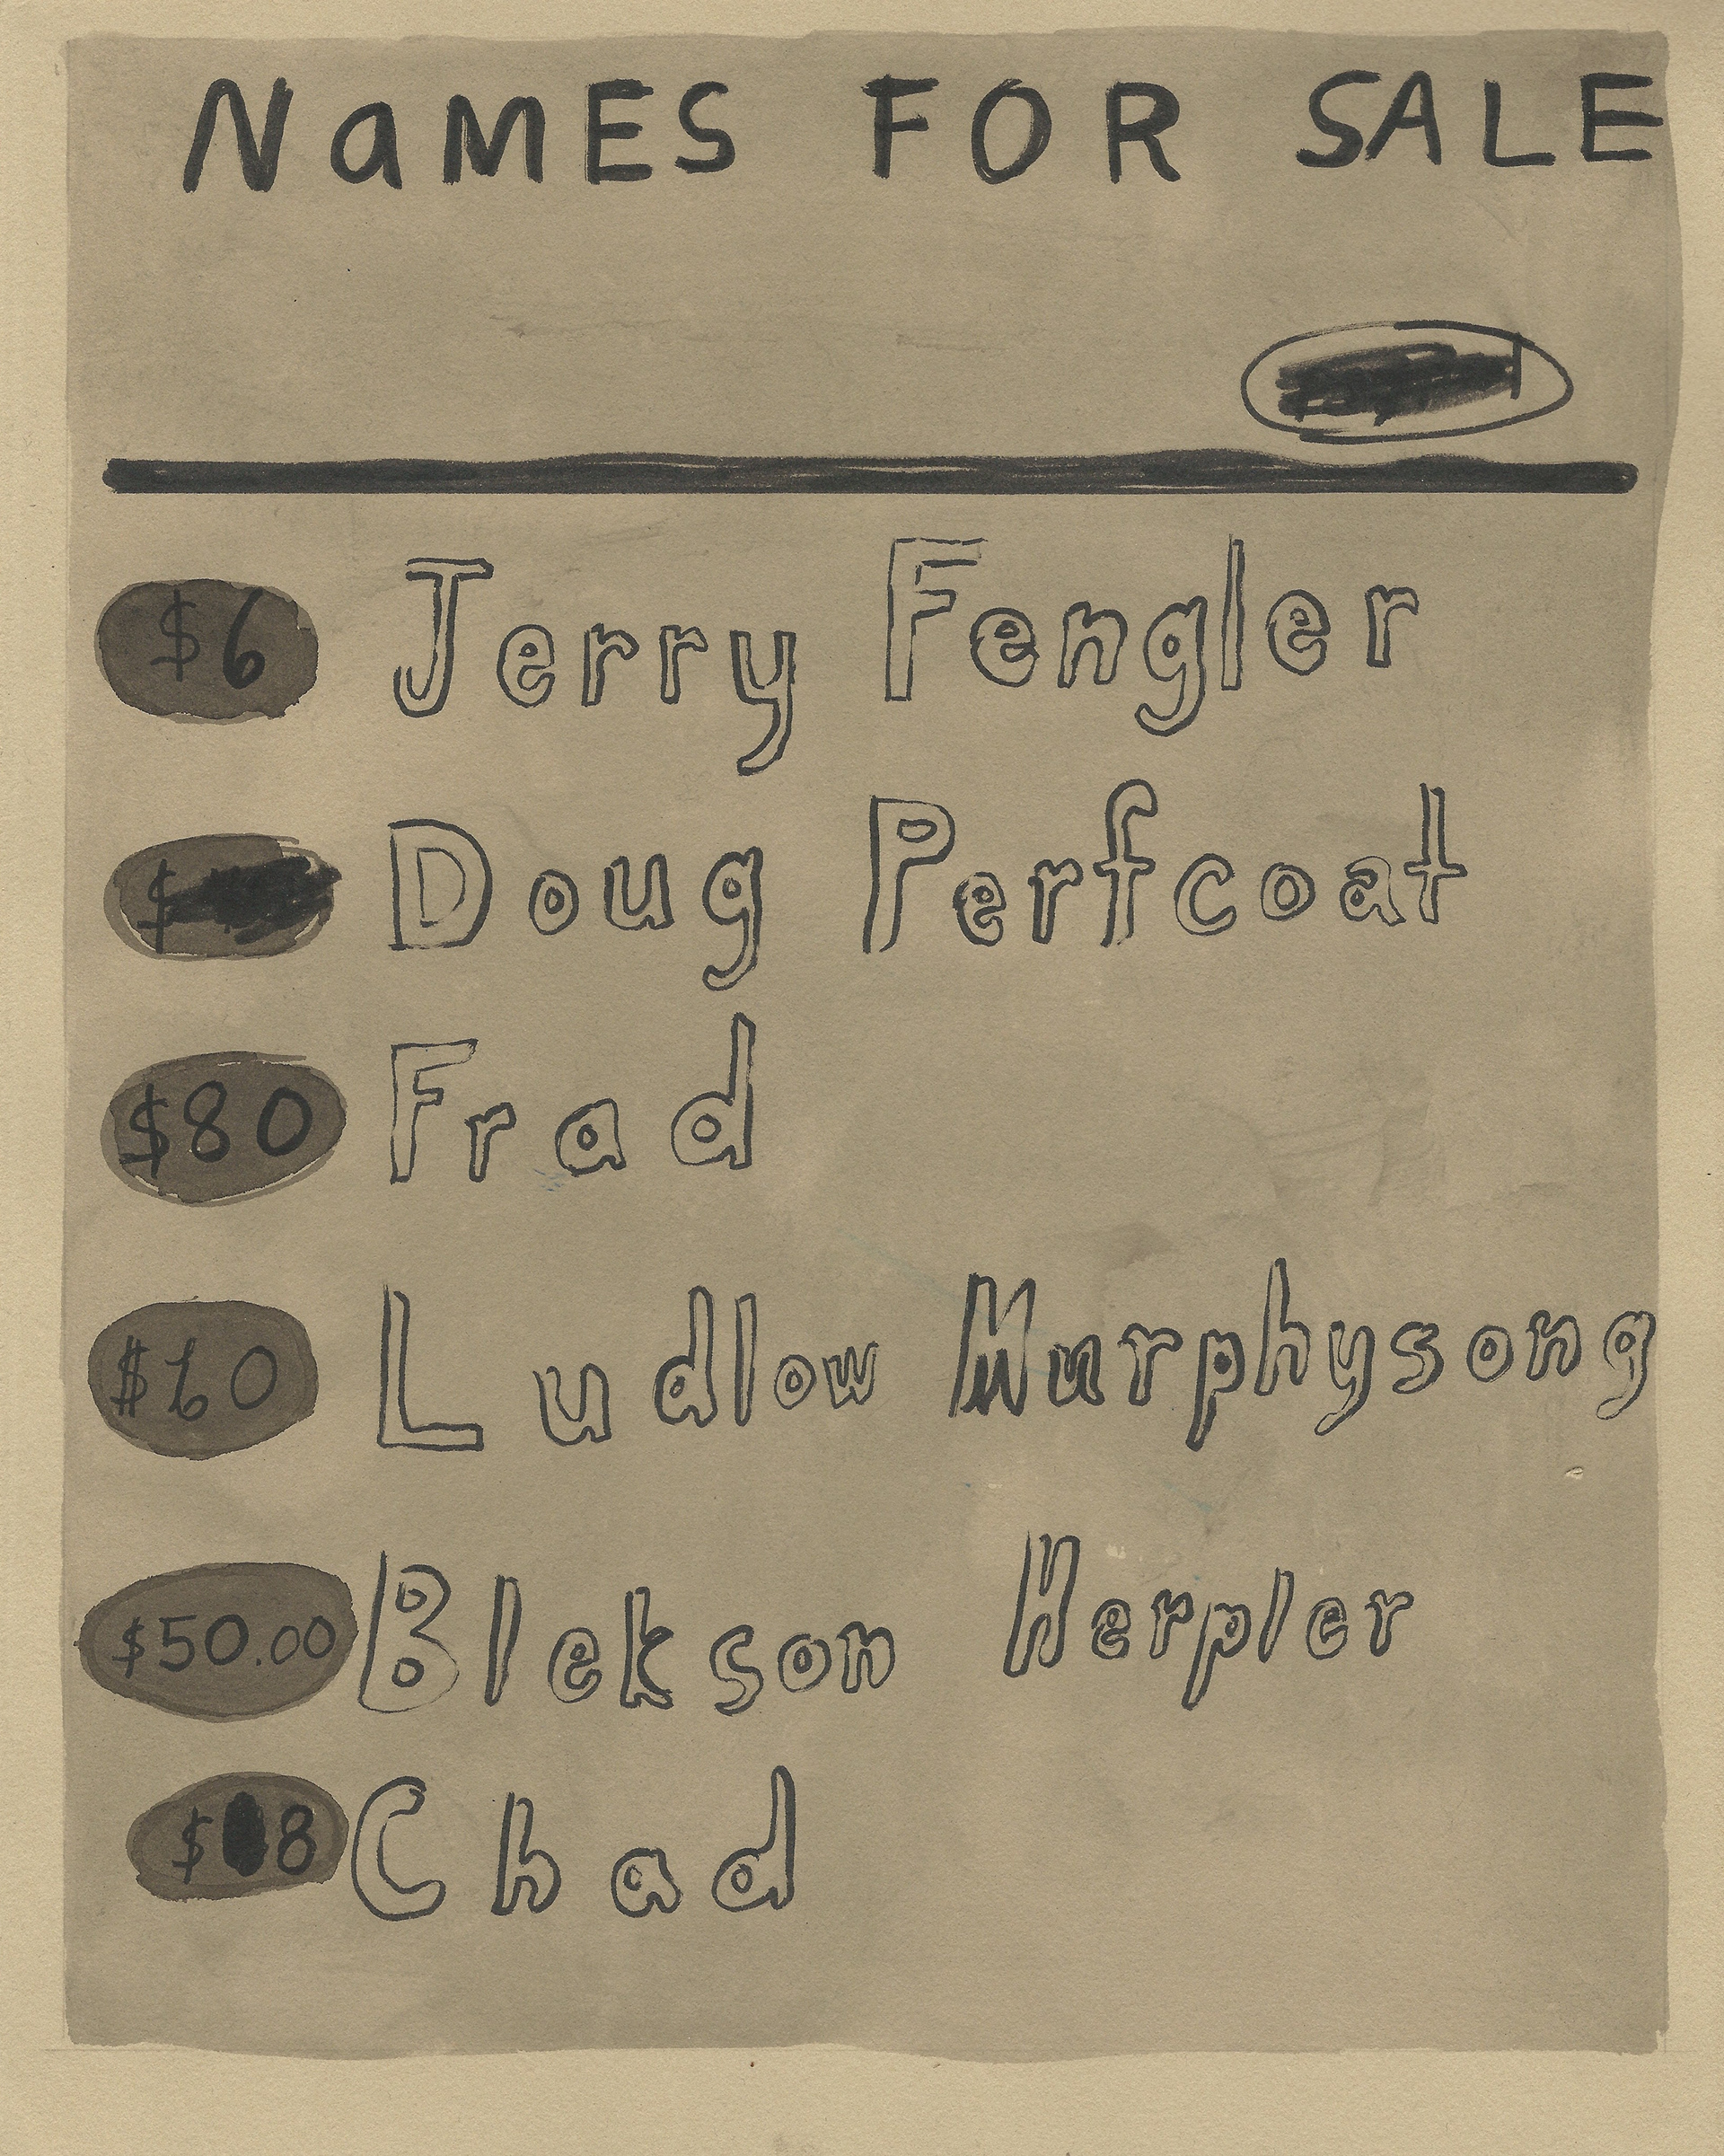 NaMES FOR SALE
$6 Jerry Fengler
$ Doug Perfcoat
$80 Frad
$60 Ludlow Murphysong
$50.00 Blekson Herpler
$8 Chad